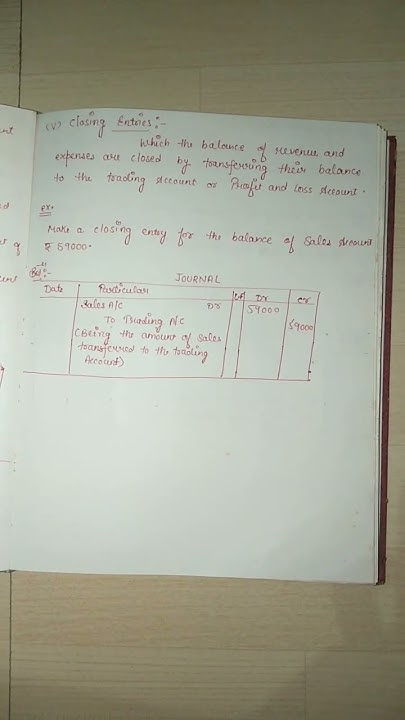 (V) Closing Entries:-
Which the balance of revenue and
expenses are closed by transferring their balance
to the trading Account or Profit and loss Account.
ex.
Make a closing entry for the balance of Sales Account
₹ 59000.
JOURNAL
Date Particular LF Dr Cr
Sales A/c Dr 59000
To Trading A/c 59000
(Being the amount of Sales
transferred to the trading
Account)